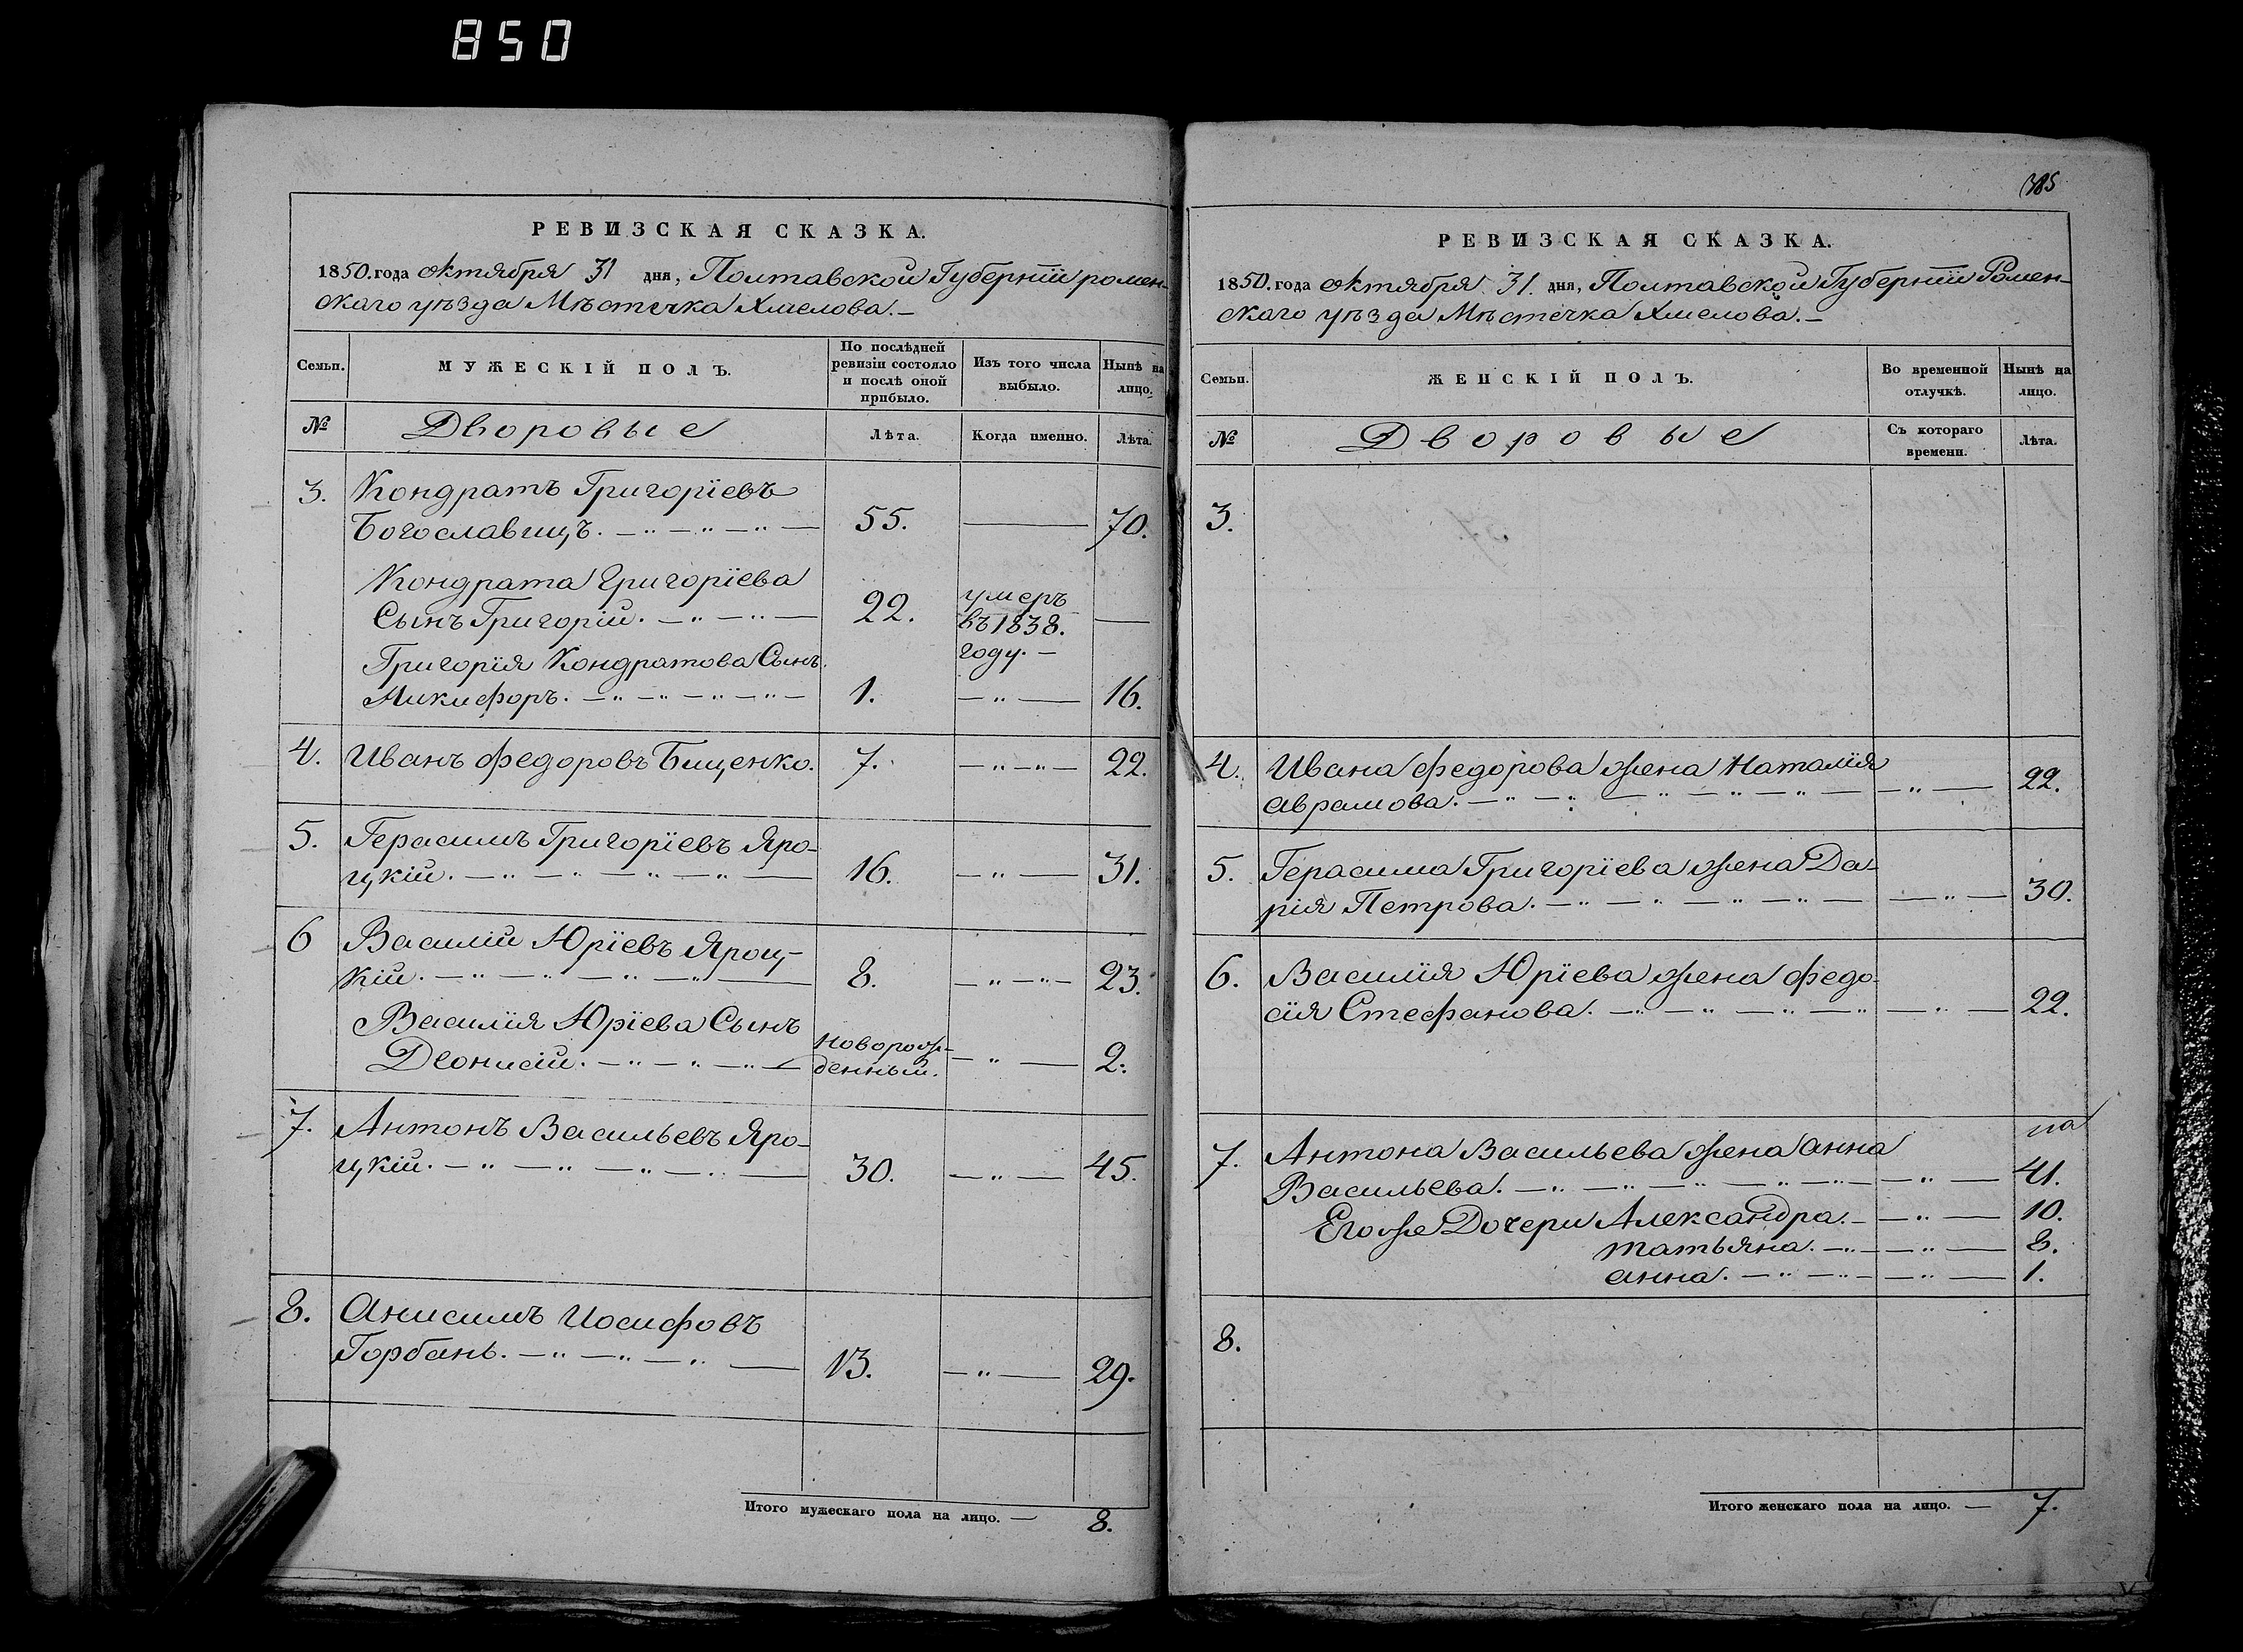 850
РЕВИЗСКАЯ СКАЗКА.
1850. года октября 31 дня, Полтавской Губернїи ромен-
скаго уѣзда Мѣстечка Хмелова. —
Семьи.
МУЖЕСКІЙ ПОЛЪ.
По послѣдней ревизіи состояло и послѣ оной прибыло.
Изъ того числа выбыло.
Нынѣ на лицо.
№
Дворовые
Лѣта.
Когда именно.
Лѣта.
3. Кондратъ Григорїевъ
Богославецъ. — 55. — 70.
Кондрата Григорїева
Сынъ Григорій. — 22. умеръ въ 1838. году. — —
Григорїя Кондратова Сынъ
Никифоръ. — 1. — 16.
4. Иванъ Федоровъ Бищенко. 7. — 22.
5. Герасимъ Григорїевъ Яро-
цкій. — 16. — 31.
6 Василій Юрїевъ Яроц-
кій. — 8. — 23.
Василїя Юрїева Сынъ
Деонисій. — новорож-
денный. — 2.
7. Антонъ Васильевъ Яро-
цкій. — 30. — 45.
8. Анисимъ Иосифовъ
Горбань. — 13. — 29.
Итого мужескаго пола на лицо. — 8.
385
РЕВИЗСКАЯ СКАЗКА.
1850. года октября 31. дня, Полтавской Губернїи Ромен-
скаго уѣзда Мѣстечка Хмелова. —
Семьи.
ЖЕНСКІЙ ПОЛЪ.
Во временной отлучкѣ.
Нынѣ на лицо.
№
Дворовые
Съ котораго времени.
Лѣта.
3.
4. Ивана Федорова жена Наталїя
Аврамова. — 22.
5. Герасима Григорїева жена Да-
рія Петрова. — 30.
6. Василїя Юрїева жена Федо-
сїя Стефанова. — 22.
7. Антона Васильева жена Анна
Васильева. — 41.
Его же Дочери Александра. — 10.
Татьяна. — 8.
Анна. — 1.
8.
Итого женскаго пола на лицо. — 7.